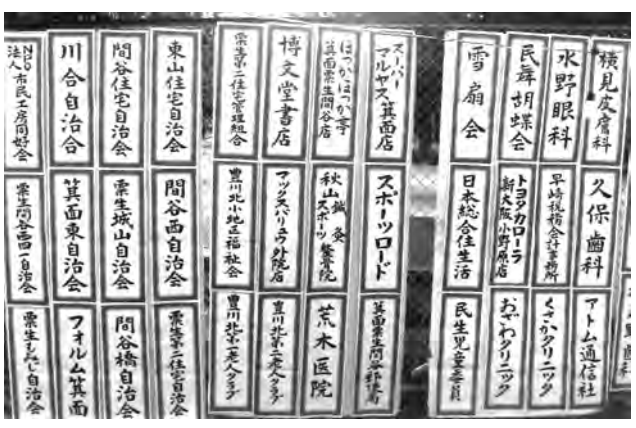 横見皮膚科
水野眼科
民舞胡蝶会
雪扇会
スーパー
マルヤス箕面店
ほっかほっか亭
箕面粟生間谷店
博文堂書店
粟生第二住宅管理組合
東山住宅自治会
間谷住宅自治会
川合自治会
NPO法人
市民工房同好会
久保歯科
早崎税務会計事務所
トヨタカローラ
新大阪小野原店
日本総合住生活
スポーツロード
秋山鍼灸
スポーツ整骨院
マックスバリュウ外院店
豊川北小地区福祉会
間谷西自治会
粟生城山自治会
箕面東自治会
粟生間谷西四一自治会
アトム通信社
くさかクリニック
おざわクリニック
民生児童委員
箕面粟生間谷郵便局
荒木医院
豊川北第二老人クラブ
豊川北第一老人クラブ
粟生第二住宅自治会
間谷橋自治会
フォルム箕面
粟生もみじ自治会